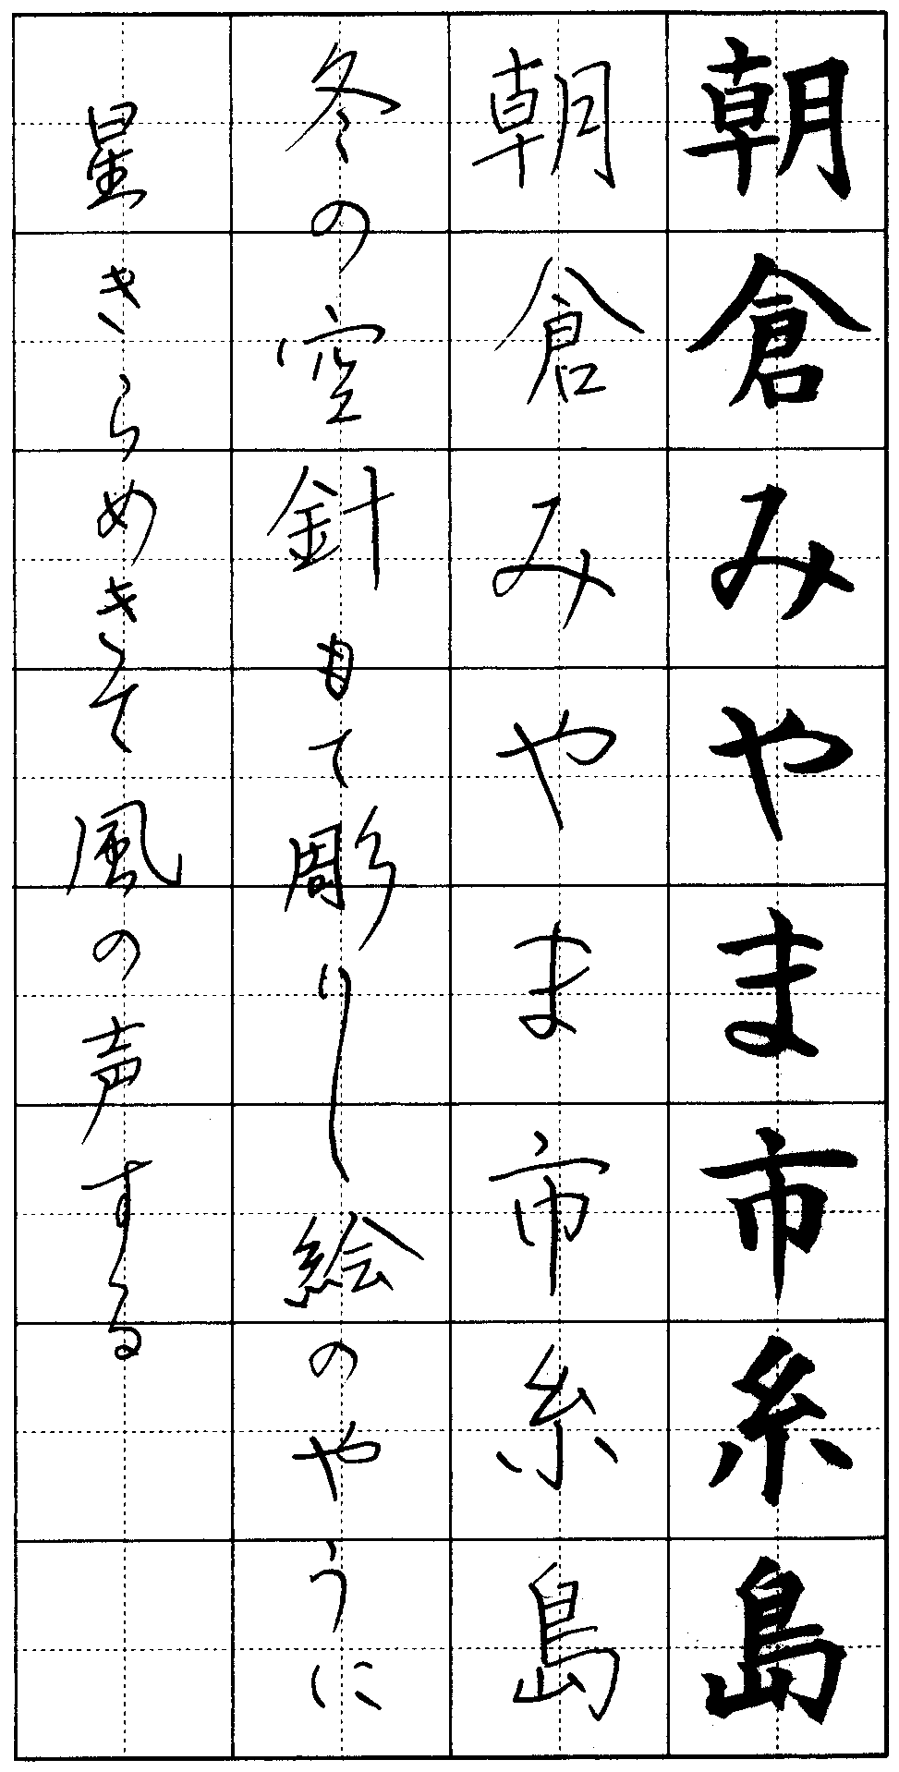 朝倉みやま市糸島
朝倉みやま市糸島
冬の空針もて彫りし絵のやうに
星きらめきて風の声する